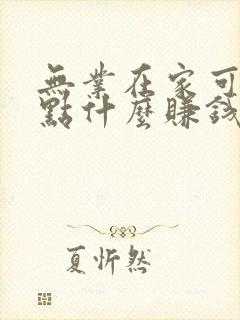 無業在家可
點什麼賺錢
夏忻然